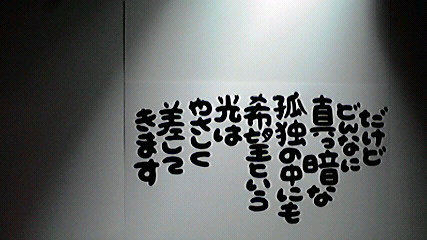 だけど
どんなに
真っ暗な
孤独の中にも
希望という
光は
やさしく
差して
きます